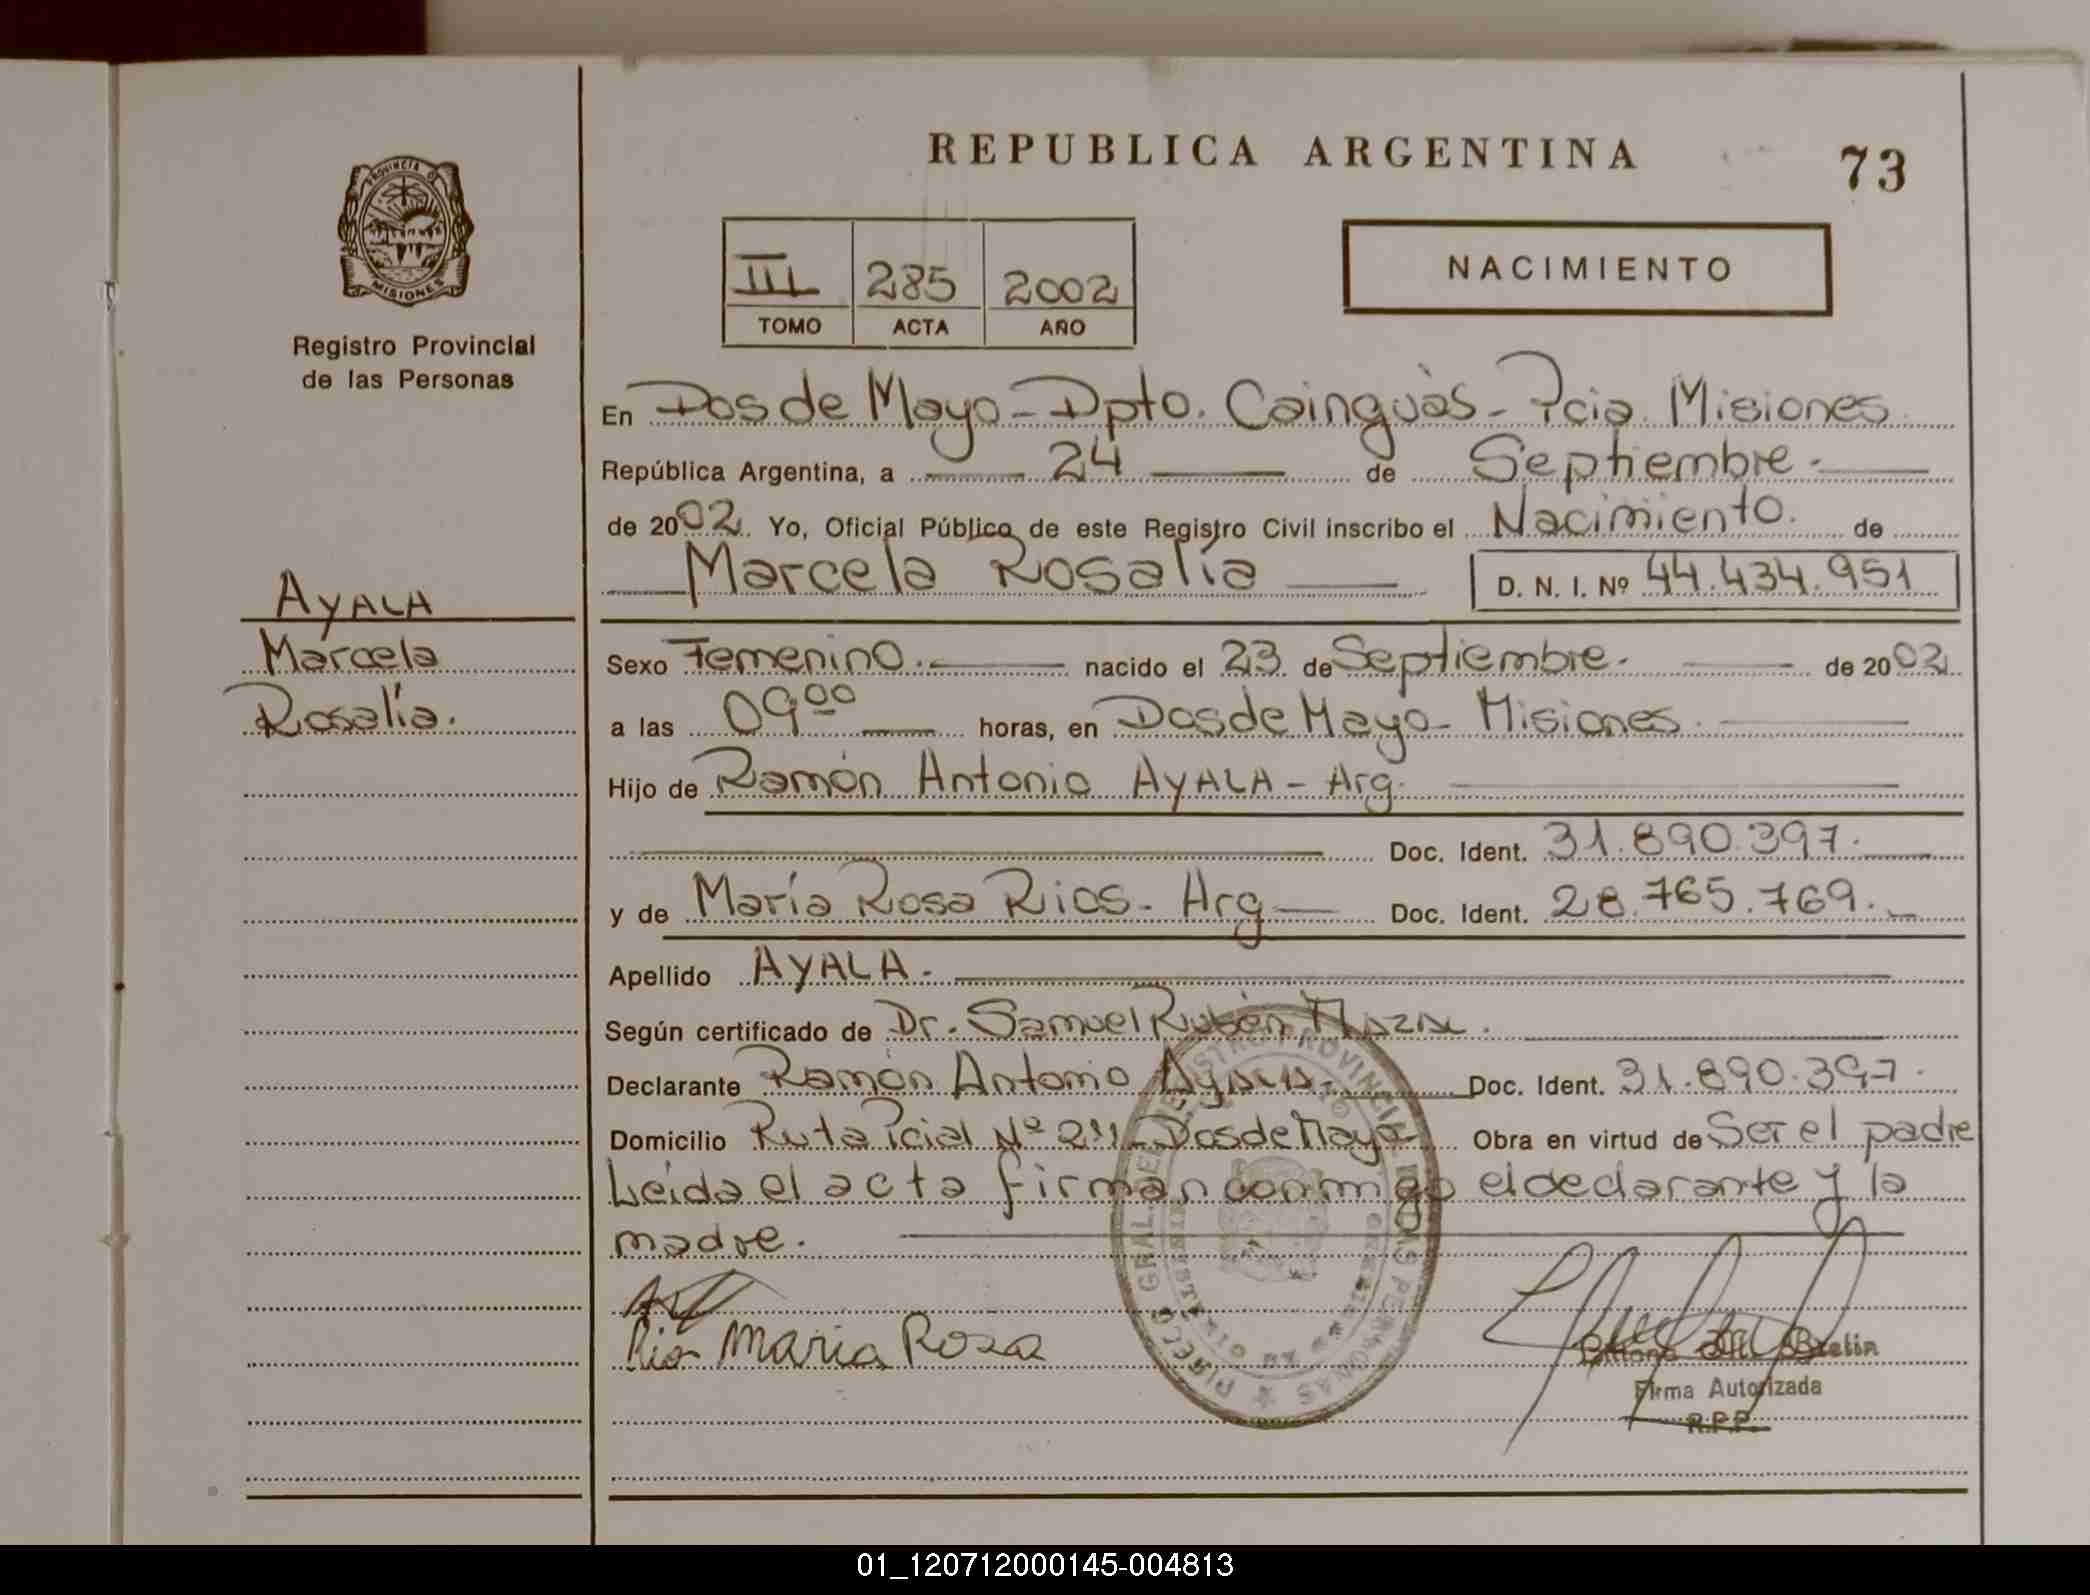 REPUBLICA ARGENTINA
73
PROVINCIA DE
MISIONES
Registro Provincial
de las Personas
III 285 2002
TOMO ACTA AÑO
NACIMIENTO
En Dos de Mayo - Dpto. Cainguàs - Pcia. Misiones
República Argentina, a 24 de Septiembre.
de 2002. Yo, Oficial Público de este Registro Civil inscribo el Nacimiento. de
Marcela Rosalía D. N. I. Nº 44.434.951
AYALA
Marcela
Rosalía.
Sexo Femenino. nacido el 23 de Septiembre. de 2002
a las 09⁰⁰ horas, en Dos de Mayo - Misiones.
Hijo de Ramón Antonio AYALA - Arg.
Doc. Ident. 31.890.397.
y de María Rosa Rios - Arg Doc. Ident. 28.765.769.
Apellido AYALA.
Según certificado de Dr. Samuel Rubén
Declarante Ramón Antonio Ayala. Doc. Ident. 31.890.397.
Domicilio Ruta Pcial Nº Dos de Mayo Obra en virtud de Ser el padre
Leída el acta firman conmigo el declarante y la
madre.
Rios Maria Rosa
Firma Autorizada
R.P.P.
01_120712000145-004813